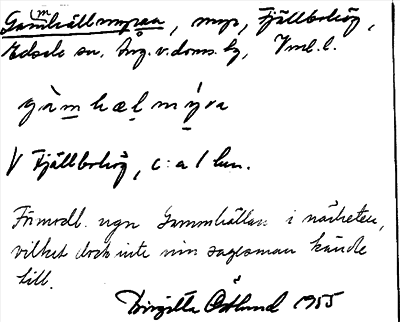 Gam(m)hällmyran, myr, Fjällbohög,
Edsele sn, Ång. v. doms. hg, Vnl. l.
gàmhæḷmýra
V Fjällbohög, c:a 1 km.
Förmodl. ngn Gammhällan i närheten,
vilket dock inte min sagesman kände
till.
Birgitta Östlund 1955